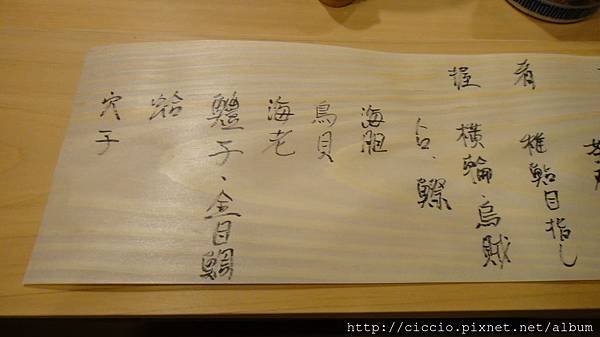 肴 稚鮎目指し
握 横輪、烏賊
トロ、
海胆
鳥貝
海老
鱧子、金目鯛
蛤
穴子
http://ciccio.pixnet.net/album